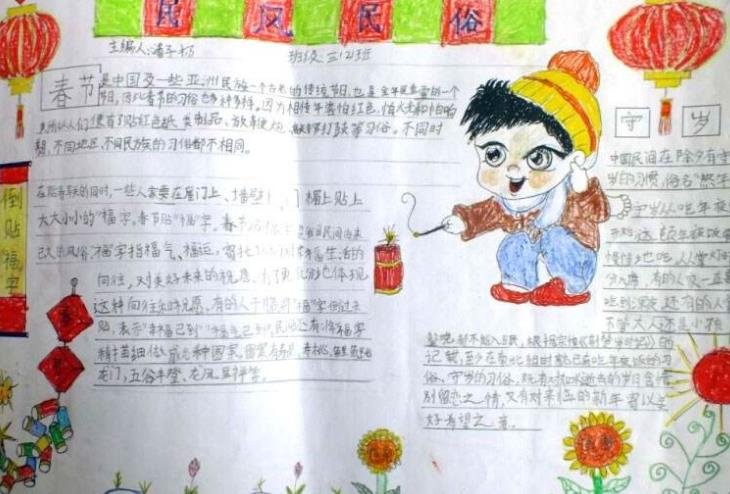 民风民俗
主编人:潘子杨 班级 三(2)班
春节
是中国及一些亚洲民族一个古老的传统节日,也是全年最重要的一个
节日,但过春节的习俗也多种多样。因为相传年害怕红色、怕火光和怕响
声,所以人们便有了贴红色纸类制品、放鞭炮、敲锣打鼓等习俗。不同时
期,不同地区、不同民族的习俗都不相同。
倒贴福字
在贴春联的同时,一些人家要在屋门上、墙壁上、门楣上贴上
大大小小的"福"字。春节贴"福"字,
久的风俗。"福"字指福气、福运,寄托 幸福生活的
向往,对美好未来的祝愿。 体现
这种向往和祝愿,有的人干脆将"福"字倒过来
贴,表示"幸福已到""福气已到"。民间还有将"福"字
精描细做成各种图案,图案有寿星、寿桃、
龙门、五谷丰登、龙凤呈祥等。
守岁
中国民间在除夕有守
岁的习惯,俗名"熬年
守岁从吃年夜饭
这顿年夜饭要
慢慢地吃,从掌灯时
分入席,有的人家一直要
吃到深夜
记载,至少在南北朝时就已有吃年夜饭的习
俗。守岁的习俗,既有对如水逝去的岁月含惜
别留恋之情,又有对来临的新年寄以美
好希望之意。